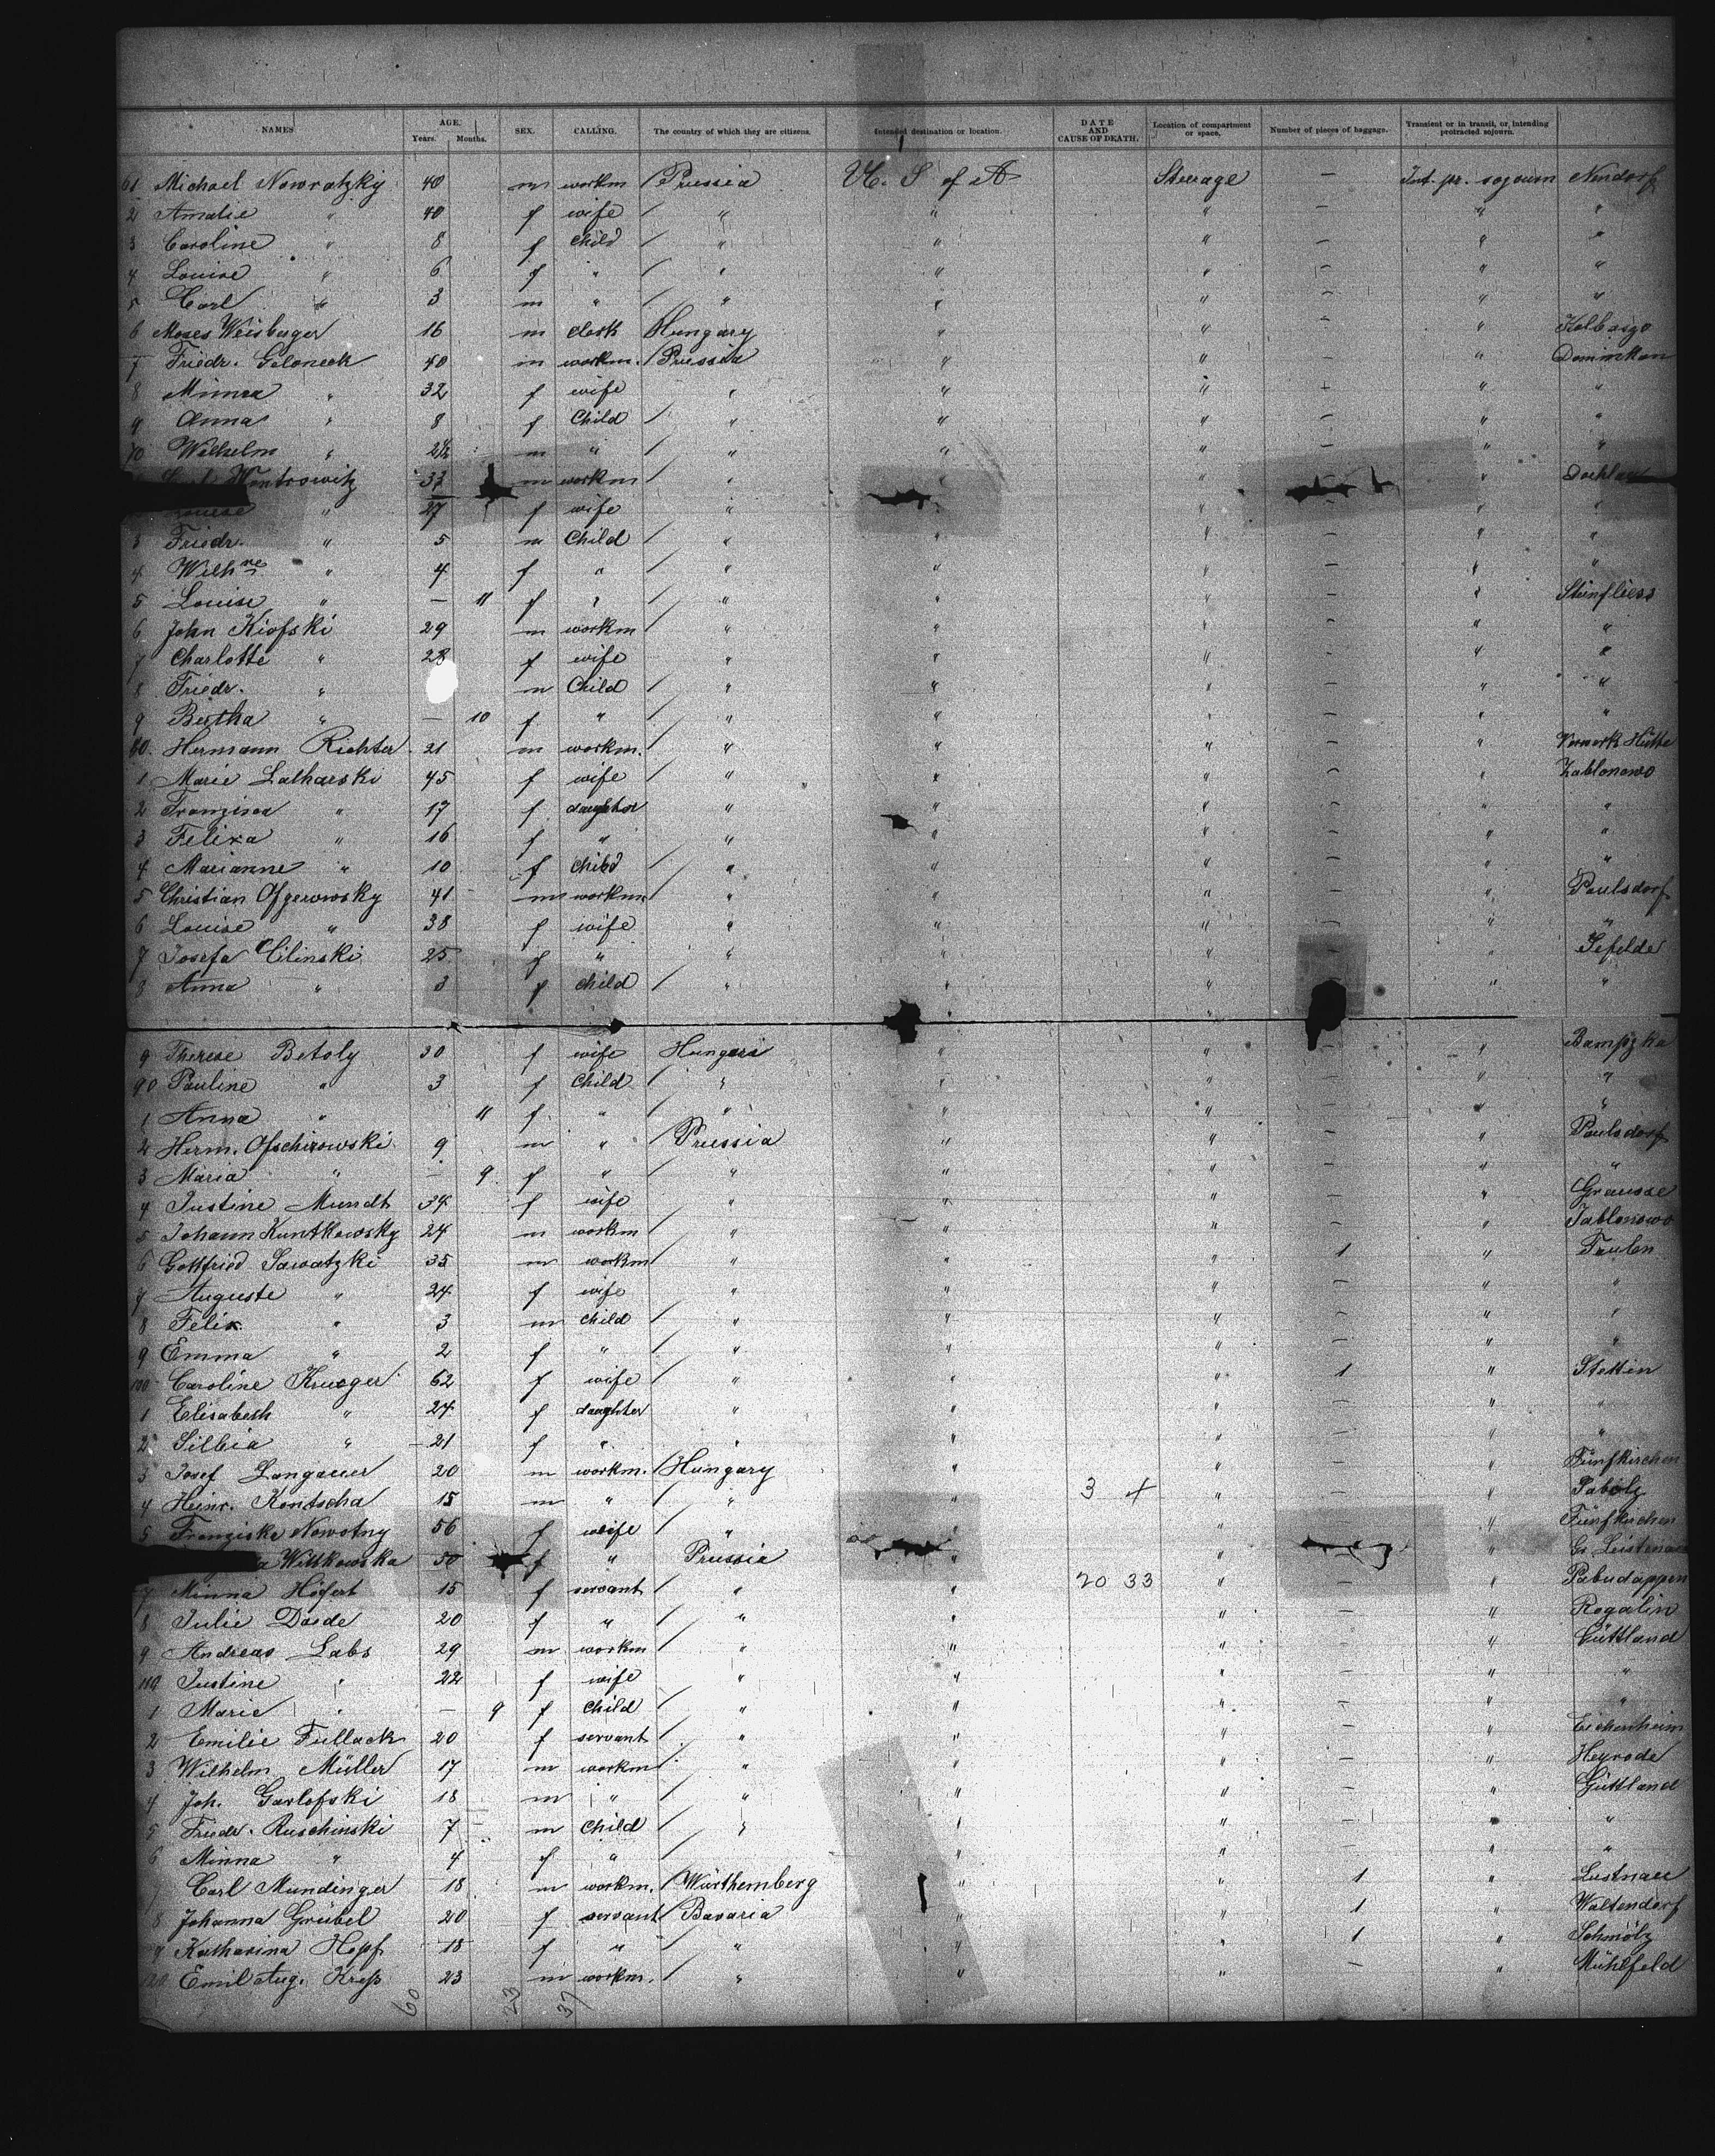 NAMES AGE. Years. Months. SEX. CALLING. The country of which they are citizens. Intended destination or location. DATE AND CAUSE OF DEATH. Location of compartment or space. Number of pieces of baggage. Transient or in transit, or intending protracted sojourn.
61 Michael Nowratzky 40 m workm Prussia U. S of A Steerage — Int. pr. sojourn Neudorf
2 Amalie " 40 f wife / " " " — " "
3 Caroline " 8 f Child / " " " — " "
4 Louise " 6 f " / " " " — " "
5 Carl " 3 m " / " " " — " "
6 Moses Weisburger 16 m clerk Hungary " " — " Kolbaszo
7 Friedr. Goloneck 40 m workm. / Prussia " " — " Dominikan
8 Minna " 32 f wife " " " — " "
9 Anna " 8 f Child / " " " — " "
70 Wilhelm " 2½ m " / " " " — " "
Wontrowitz 33 m workm " " " "
Louise " 27 f wife " " " — " "
3 Friedr. " 5 m Child / " " " — " "
4 Wilhne " 4 f " / " " " — " "
5 Louise " — 11 f " / " " " — " Steinfliess
6 John Kiofski 29 m workm / " " " — " "
7 Charlotte " 28 f wife " " " — " "
8 Friedr. " m Child / " " " — " "
9 Bertha " — 10 f " / " " " — " "
80. Hermann Richter 21 m workm. / " " " — " Vorwerk Hütte
1 Marie Latharski 45 f wife / " " " — " Jablonowo
2 Franzisca " 17 f daughter " " " — " "
3 Felixa " 16 f " " " " — " "
4 Marianne " 10 f Child / " " " — " "
5 Christian Ofgerowsky 41 m workm / " " " — " Paulsdorf
6 Louise " 38 f wife " " " — " "
7 Josefa Cilinski 25 f " " " " — " Sefelde
8 Anna " 3 f child / " " " — " "
9 Therese Betoly 30 f wife Hungari " " — "
90 Pauline " 3 f Child / " " " — " "
1 Anna " 11 f " / " " " — " "
2 Herm. Ofschirowski 9 m " / Prussia " " — " Paulsdorf
3 Maria " — 9 f " / " " " — " "
4 Justine Mundt 34 f wife " " " — " Grausse
5 Johann Kuntkowsky 24 m workm / " " " — " Jablonowo
6 Gottfried Sawatzki 35 m workm / " " " 1 " Taulen
7 Auguste " 24 f wife " " " — " "
8 Felix " 3 m child / " " " — " "
9 Emma " 2 f " / " " " — " "
100 Caroline Krueger 62 f wife / " " " 1 " Stettin
1 Elisabeth " 24 f daughter " " " — " "
2 Silbia " 21 f " " " " — " "
3 Josef Langauer 20 m workm. / Hungary " " — " Fünfkirchen
4 Heinr. Kontscha 15 m " / " " 3 4 " — "
5 Franziska Nowotny 56 f wife / " " " — " Fünfkirchen
Witkowska 50 f " Prussia " " — " Gr. Leistenau
7 Minna Höfert 15 f servant / " " 20 33 " — "
8 Julie Dasde 20 f " / " " " — " Rogalin
9 Andreas Labs 29 m workm / " " " — " Güttland
110 Justine " 22 f wife " " " — " "
1 Marie " — 9 f Child / " " " — " "
2 Emilie Fullack 20 f servant / " " " — " Eichenheim
3 Wilhelm Müller 17 m workm / " " " — " Heyrode
4 Joh. Garlofski 18 m " / " " " — " Güttland
5 Friedr. Ruschinski 7 m Child / " " " — " "
6 Minna " 4 f " / " " — " "
7 Carl Mundinger 18 m workm. / Würthemberg " " 1 " Lustnau
8 Johanna Grübel 20 f servant / Bavaria " " 1 " Waltendorf
9 Katharina Hopf 18 f " / " " " 1 " Schmölz
120 Emil Aug. Kress 23 m workm. / " " " — " Mühlfeld
60 23 37